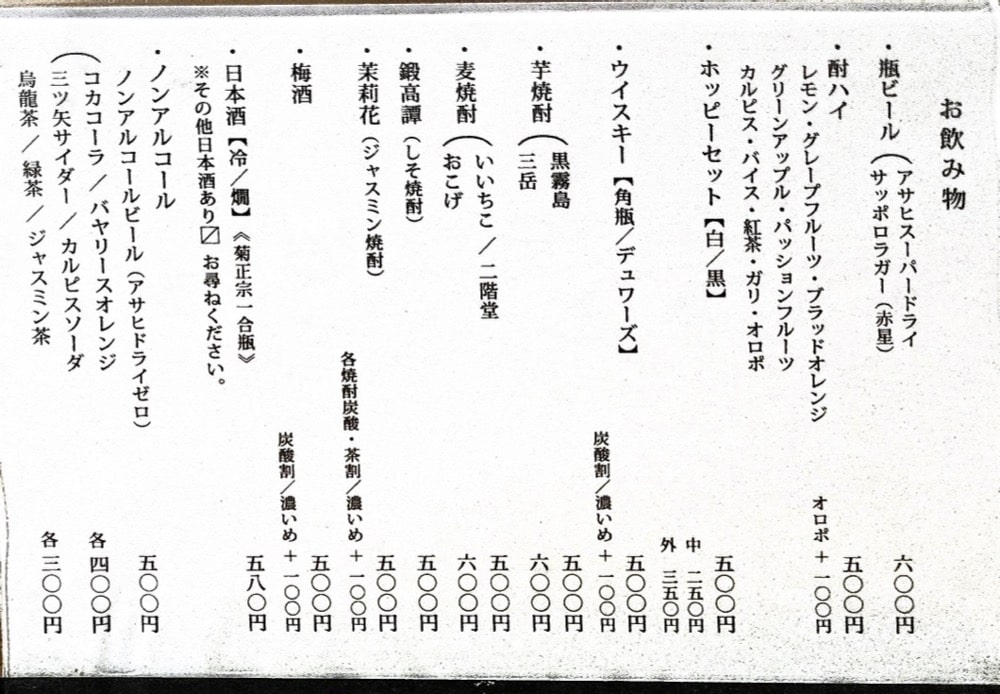 お飲み物
・瓶ビール（アサヒスーパードライ
サッポロラガー（赤星） 六〇〇円
・酎ハイ 五〇〇円
レモン・グレープフルーツ・ブラッドオレンジ オロポ＋一〇〇円
グリーンアップル・パッションフルーツ
カルピス・バイス・紅茶・ガリ・オロポ
・ホッピーセット【白／黒】 五〇〇円
中 二五〇円
外 三五〇円
・ウイスキー【角瓶／デュワーズ】 五〇〇円
炭酸割／濃いめ＋一〇〇円
・芋焼酎（黒霧島 五〇〇円
三岳 六〇〇円
・麦焼酎（いいちこ／二階堂 五〇〇円
おこげ 六〇〇円
・鍛高譚（しそ焼酎） 五〇〇円
・茉莉花（ジャスミン焼酎） 五〇〇円
各焼酎炭酸・茶割／濃いめ＋一〇〇円
・梅酒 五〇〇円
炭酸割／濃いめ＋一〇〇円
・日本酒【冷／燗】《菊正宗一合瓶》 五八〇円
※その他日本酒あり〼 お尋ねください。
・ノンアルコール
ノンアルコールビール（アサヒドライゼロ） 五〇〇円
（コカコーラ／バヤリースオレンジ 各四〇〇円
三ツ矢サイダー／カルピスソーダ
烏龍茶／緑茶／ジャスミン茶 各三〇〇円